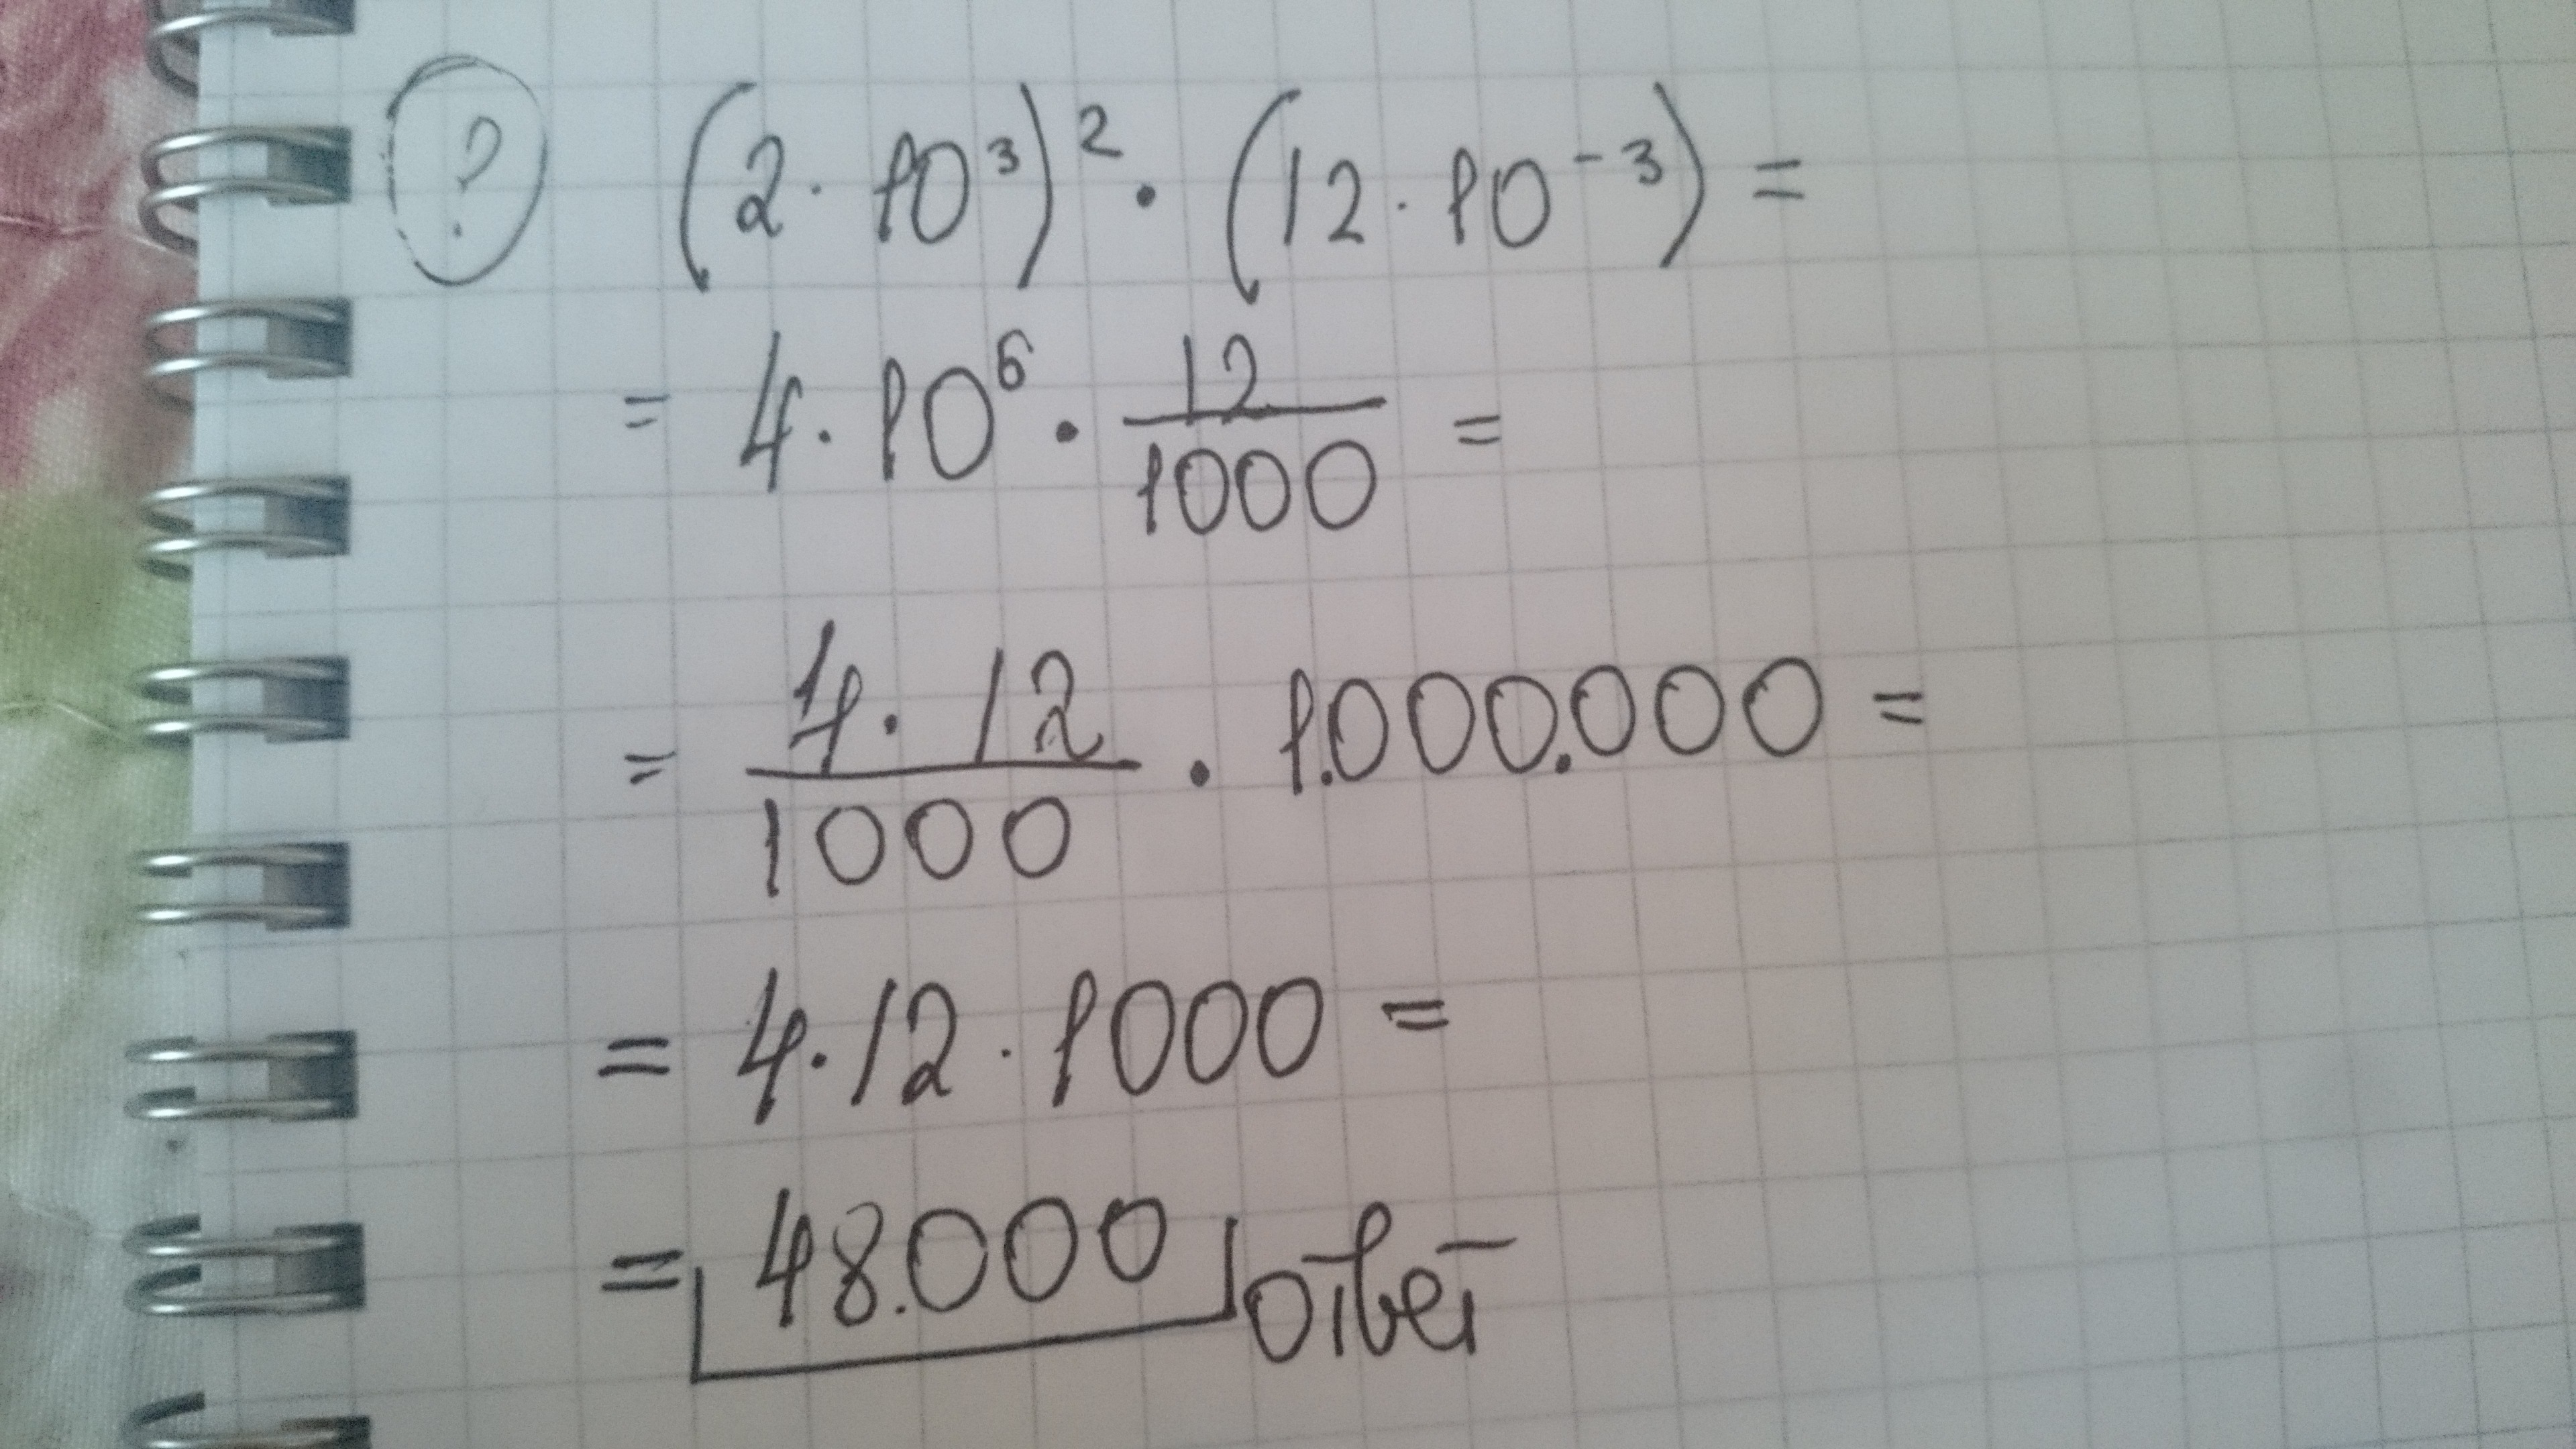 ? (2 · 10³)² · (12 · 10⁻³) =
= 4 · 10⁶ · 12/1000 =
= 4 · 12/1000 · 1.000.000 =
= 4 · 12 · 1000 =
= 48.000 ответ